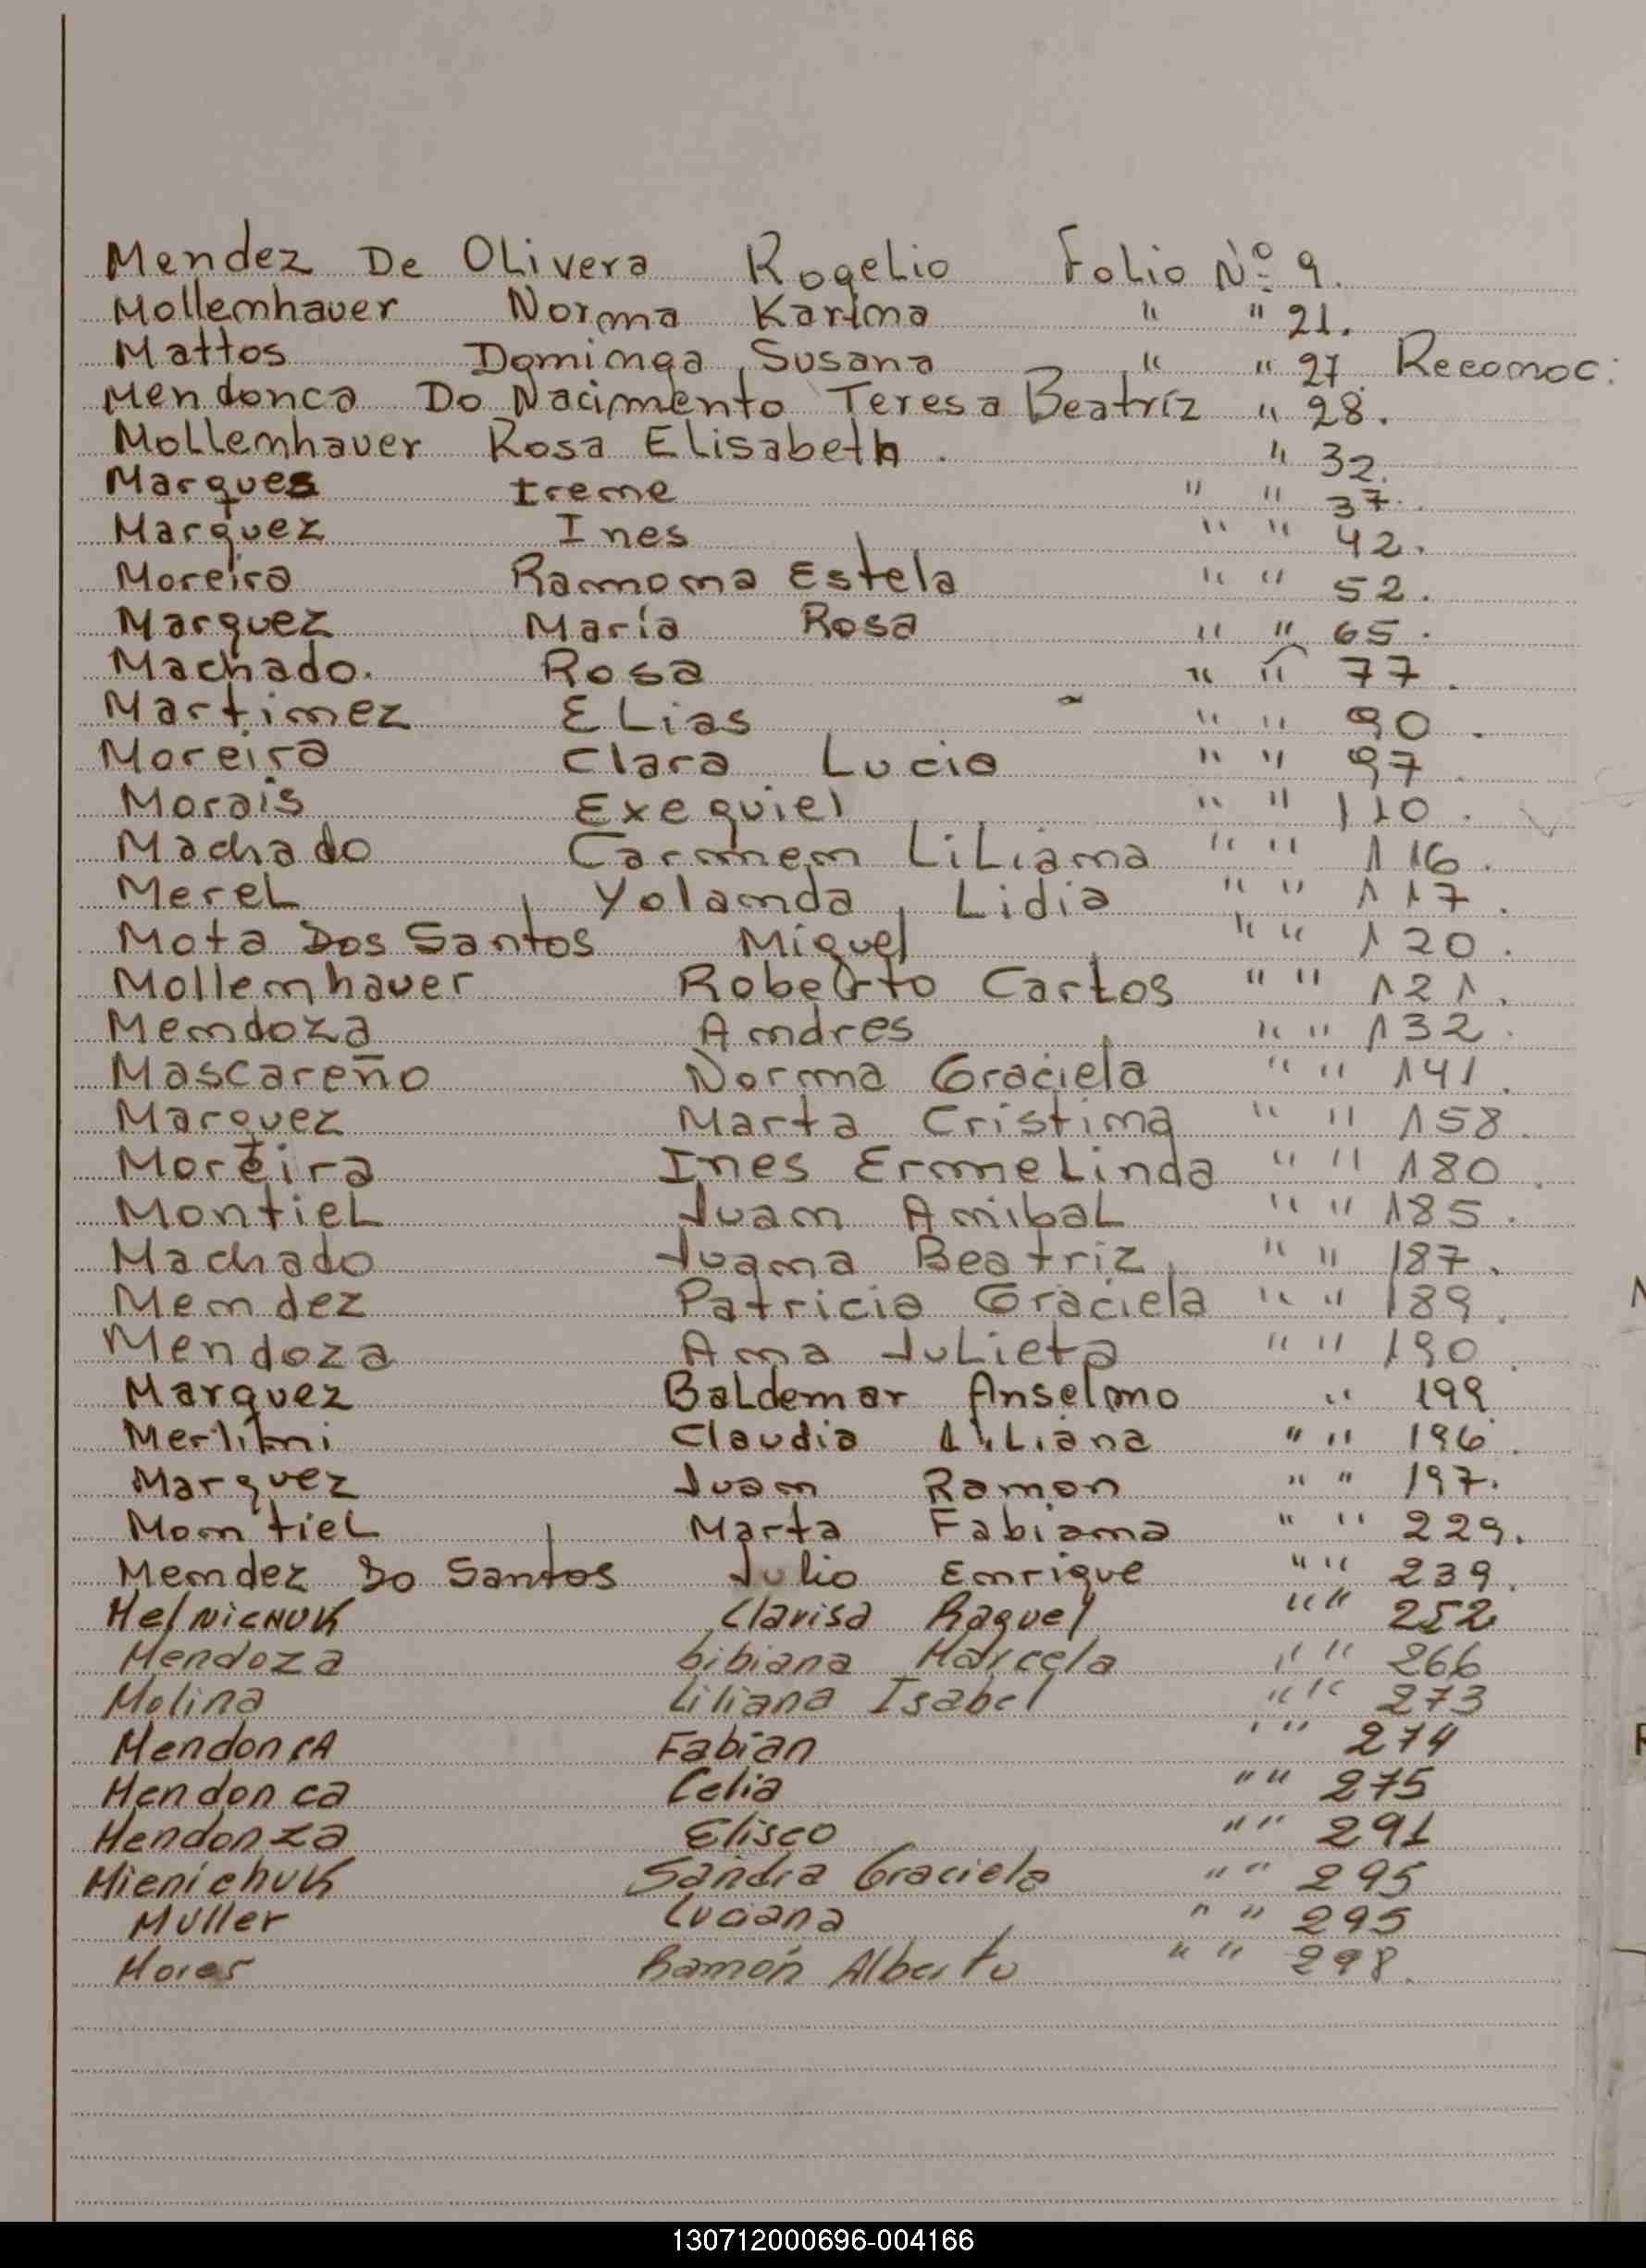 Mendez De Olivera Rogelio Folio Nº 9.
Mollemhauer Norma Karina " " 21.
Mattos Dominga Susana " " 27. Reconoc:
Mendonca Do Nacimento Teresa Beatriz " 28.
Mollemhauer Rosa Elisabeth. " 32.
Marques Irene " " 37.
Marquez Ines " " 42.
Moreira Ramona Estela " " 52.
Marquez María Rosa " " 65.
Machado. Rosa " " 77.
Martinez Elias " " 90.
Moreira Clara Lucia " " 97.
Morais Exequiel " " 110.
Machado Carmen Liliana " " 116.
Merel Yolanda Lidia " " 117.
Mota Dos Santos Miguel " " 120.
Mollemhauer Roberto Carlos " " 121.
Mendoza Andres " " 132.
Mascareño Norma Graciela " " 141.
Marquez Marta Cristina " " 158.
Moreira Ines Ermelinda " " 180.
Montiel Juan Anibal " " 185.
Machado Juana Beatriz " " 187.
Mendez Patricia Graciela " " 189.
Mendoza Ana Julieta " " 190.
Marquez Baldemar Anselmo " 199
Claudia Liliana " " 196.
Marquez Juan Ramon " " 197.
Montiel Marta Fabiana " " 229.
Mendez Do Santos Julio Enrique " " 239.
Melnicnuk Clarisa Raquel " " 252
Mendoza bibiana Marcela " " 266
Molina Liliana Isabel " " 273
Mendonca Fabian " " 274
Mendonca Celia " " 275
Mendonza Eliseo " " 291
Mienichuk Sandra Graciela " " 295
Muller Luciana " " 295
Mores Ramón Alberto " " 298.
130712000696-004166